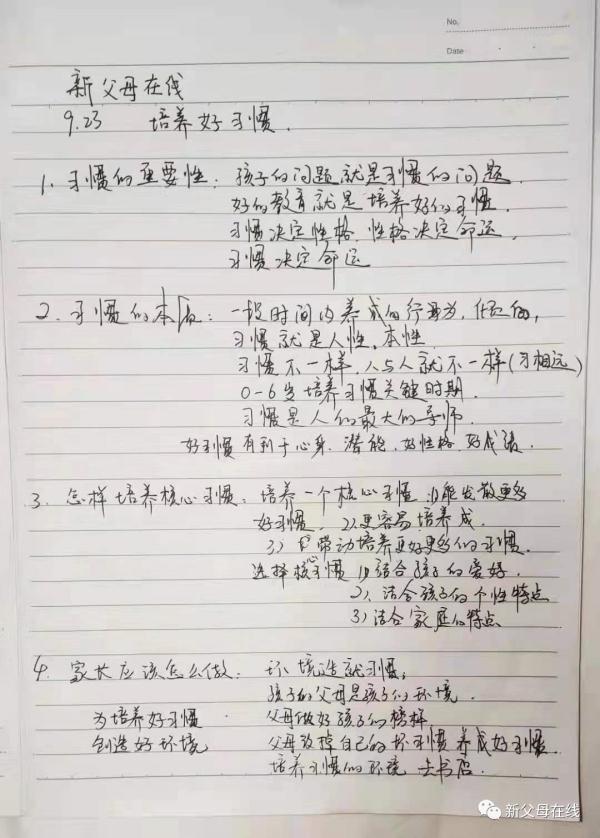 No.
Date
新父母在线
9.23 培养好习惯.
1. 习惯的重要性: 孩子的问题就是习惯的问题
好的教育就是培养好的习惯.
习惯决定性格, 性格决定命运,
习惯决定命运
2. 习惯的本质: 一段时间内养成的行为,
习惯就是人性, 本性
习惯不一样, 人与人就不一样(习相远)
0-6岁培养习惯关键时期.
习惯是人们最大的导师.
好习惯有利于心身. 潜能, 好性格, 好成绩.
3. 怎样培养核心习惯: 培养一个核心习惯 1)能发散更多
好习惯. 2)更容易培养成.
3) 带动培养更好更多的习惯.
选择核心习惯 1)结合孩子的爱好.
2) 结合孩子的个性特点
3)结合家庭的特点
4. 家长应该怎么做: 环境造就习惯,
孩子的父母是孩子的环境.
为培养好习惯 父母做好孩子的榜样
创造好环境 父母改掉自己的坏习惯养成好习惯.
培养习惯的环境 去书店.
新父母在线